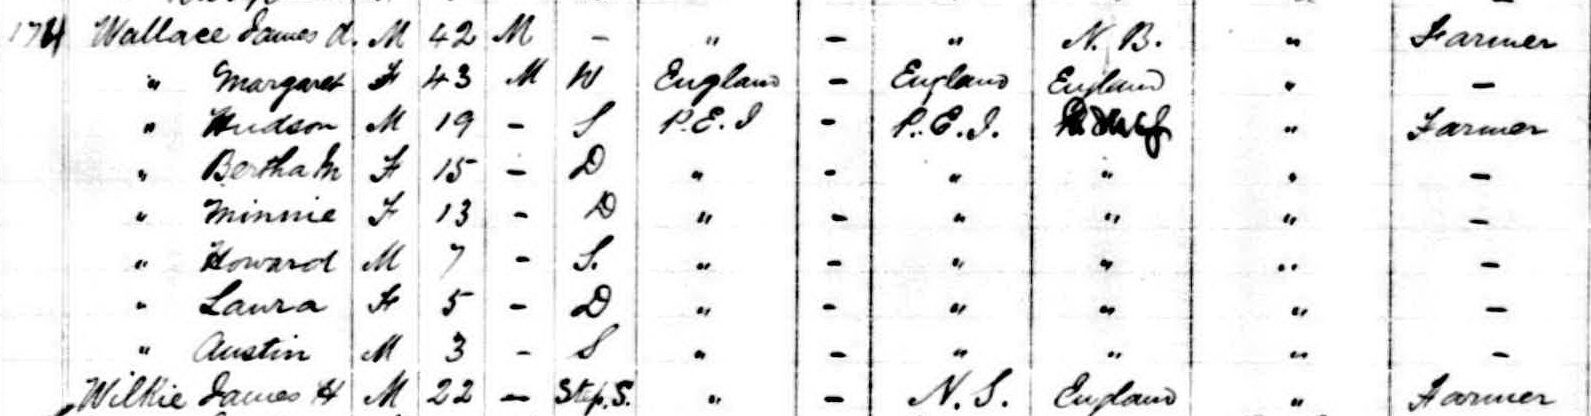 174 Wallace James A. M 42 M - " - " N. B. " Farmer
" Margaret F 43 M W England - England England " -
" Hudson M 19 - S P.E.I - P.E.I. " Farmer
" Bertha M F 15 - D " - " " " -
" Minnie F 13 - D " - " " " -
" Howard M 7 - S. " - " " " -
" Laura F 5 - D " - " " " -
" Austin M 3 - S " - " " " -
Wilkie James H M 22 - Step. S. " - N. S. England " Farmer